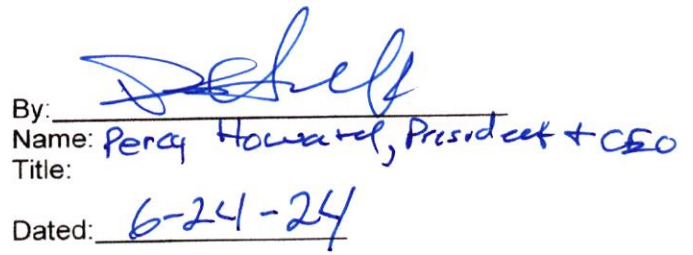 By:
Name: Percy Howard, President + CEO
Title:
Dated: 6-24-24